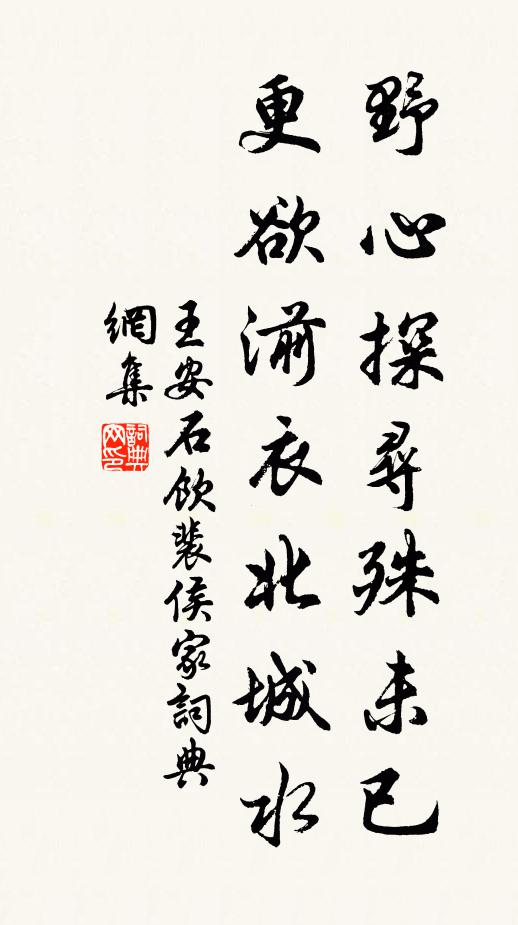 野心探尋殊未已
更欲湔衣北城水
王安石飲裴侯家詞典
網集
詞典
网印